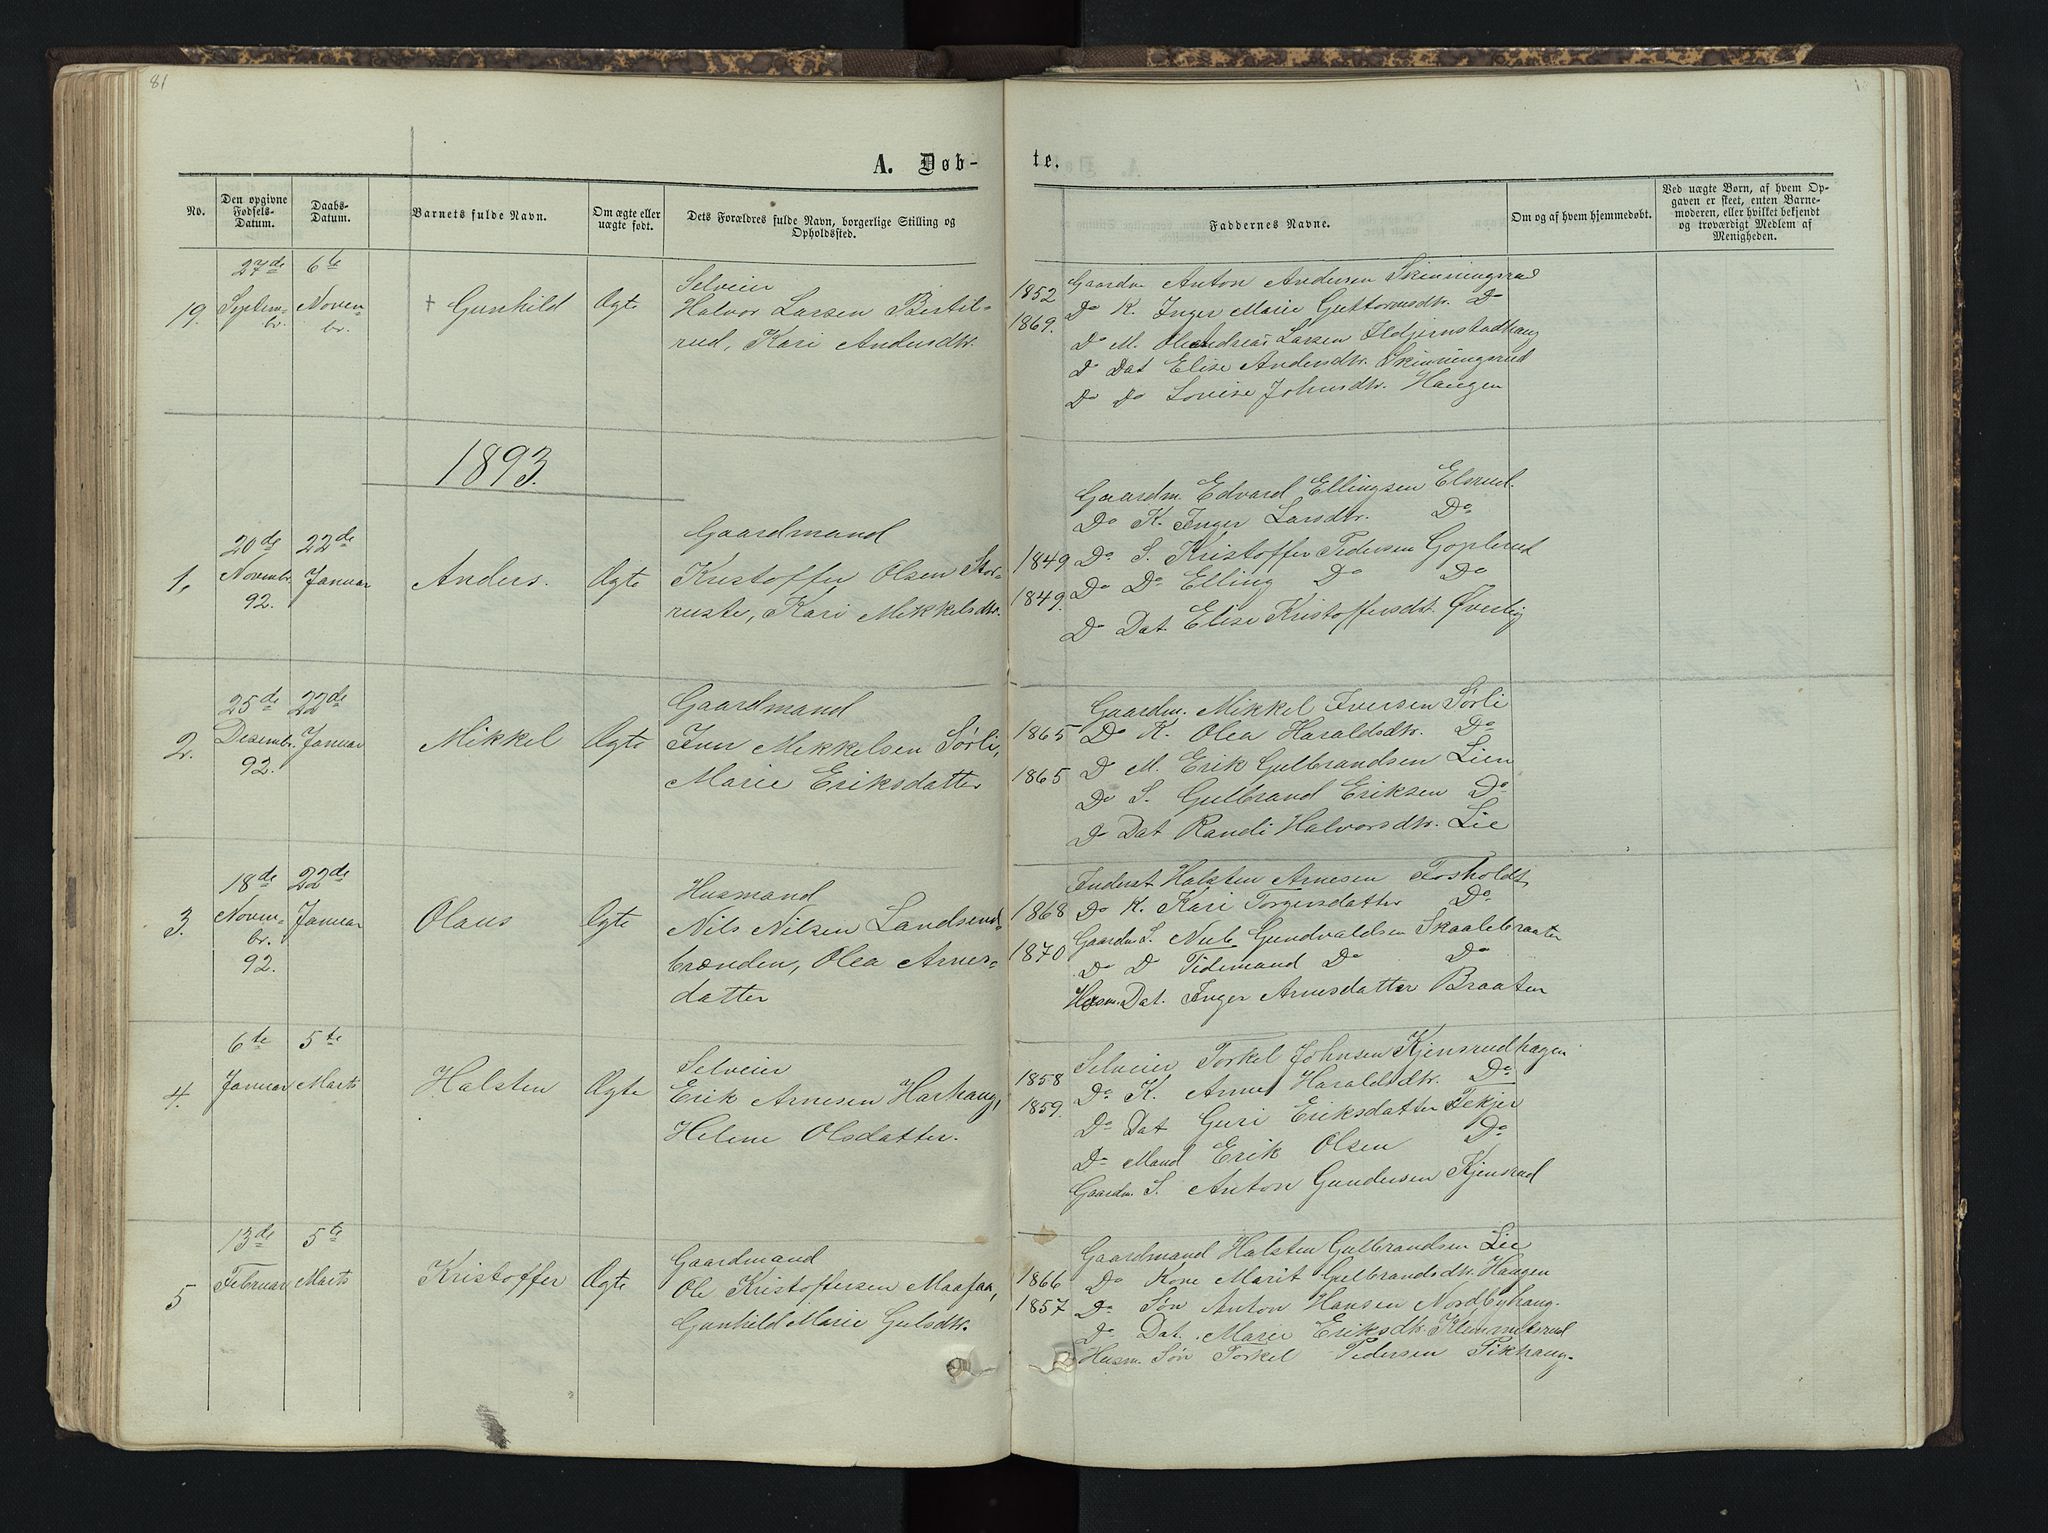 81
A. Døb-
te.
No.
Den opgivne Fødsels-Datum.
Daabs-Datum.
Barnets fulde Navn.
Om ægte eller uægte født.
Dets Forældres fulde Navn, borgerlige Stilling og Opholdssted.
Faddernes Navne.
Om og af hvem hjemmedøbt.
Ved uægte Børn, af hvem Op-
gaven er skeet, enten Barne-
moderen, eller hvilket bekjendt
og troværdigt Medlem af
Menigheden.
19.
27de
Septem-
br.
6te
Novem-
br.
+ Gunhild
Ægte
Selveier
Halvor Larsen Bertil-
rud, Kari Andersdtr.
1852
1869.
Gaardm Anton Andersen Skinningsrud
Do K. Inger Marie Guttormsdtr. Do
Do M. Ole Andreas Larsen Hdjernstadhaug
Do Dat Elise Andersdtr. Skinningsrud
Do Do Lovise Johnsdtr. Haugen
1893.
1,
20de
Novembr.
92.
22de
Januar
Anders.
Ægte
Gaardmand
Kristoffer Olsen Stor-
ruste, Kari Mikkelsdtr.
1849
1849.
Gaardm. Edvard Ellingsen Elsrud.
Do K. Inger Larsdtr. Do
Do S. Kristoffer Pedersen Goplerud
Do Do Elling Do Do
Do Dat. Elise Kristoffersdt. Øverby
2.
25de
Desembr.
92.
22de
Januar
Mikkel
Ægte
Gaardmand
Iver Mikkelsen Sørli,
Marie Eriksdatter
1865
1865
Gaardm. Mikkel Iversen Sørli
Do K. Olea Haraldsdtr. Do
D M. Erik Gulbrandsen Lien
Do S. Gulbrand Eriksen Do
Do Dat Randi Halvorsdtr. Lie
3.
18de
Novem-
br.
92.
22de
Januar
Olaus
Ægte
Husmand
Nils Nilsen Landsend-
brænden, Olea Arnes-
datter
1868
1870
Inderst Halsten Arnesen Fosholdt
Do K. Kari Torgersdatter Do
Gaardm S. Nub Gundvaldsen Skaalebraaten
Do D Tidemand Do Do
Husm. Dat. Inger Arnesdatter Braaten
4.
6te
Januar
5te
Marts
Halsten
Ægte
Selveier
Erik Arnesen Horhaug,
Helene Olsdatter.
1858
1859.
Selveier Torkel Johnsen Kjensrudhagen
Do K. Anne Haraldsdtr. Do
Do Dat Guri Eriksdatter Tekjer
Do Mand Erik Olsen Do
Gaardm. S. Anton Gundersen Kjensrud
5
13de
Februar
5te
Marts
Kristoffer
Ægte
Gaardmand
Ole Kristoffersen Maafaa,
Gunhild Marie Gulsdtr.
1866
1857
Gaardmand Halsten Gulbrandsen Lie
Do Kone Marit Gulbrandsdtr. Haugen
Do Søn Anton Hansen Nordbyhaug.
Do Dat. Marie Eriksdtr. Klemmetsrud
Husm. Søn Torkel Pedersen Tikhaug.